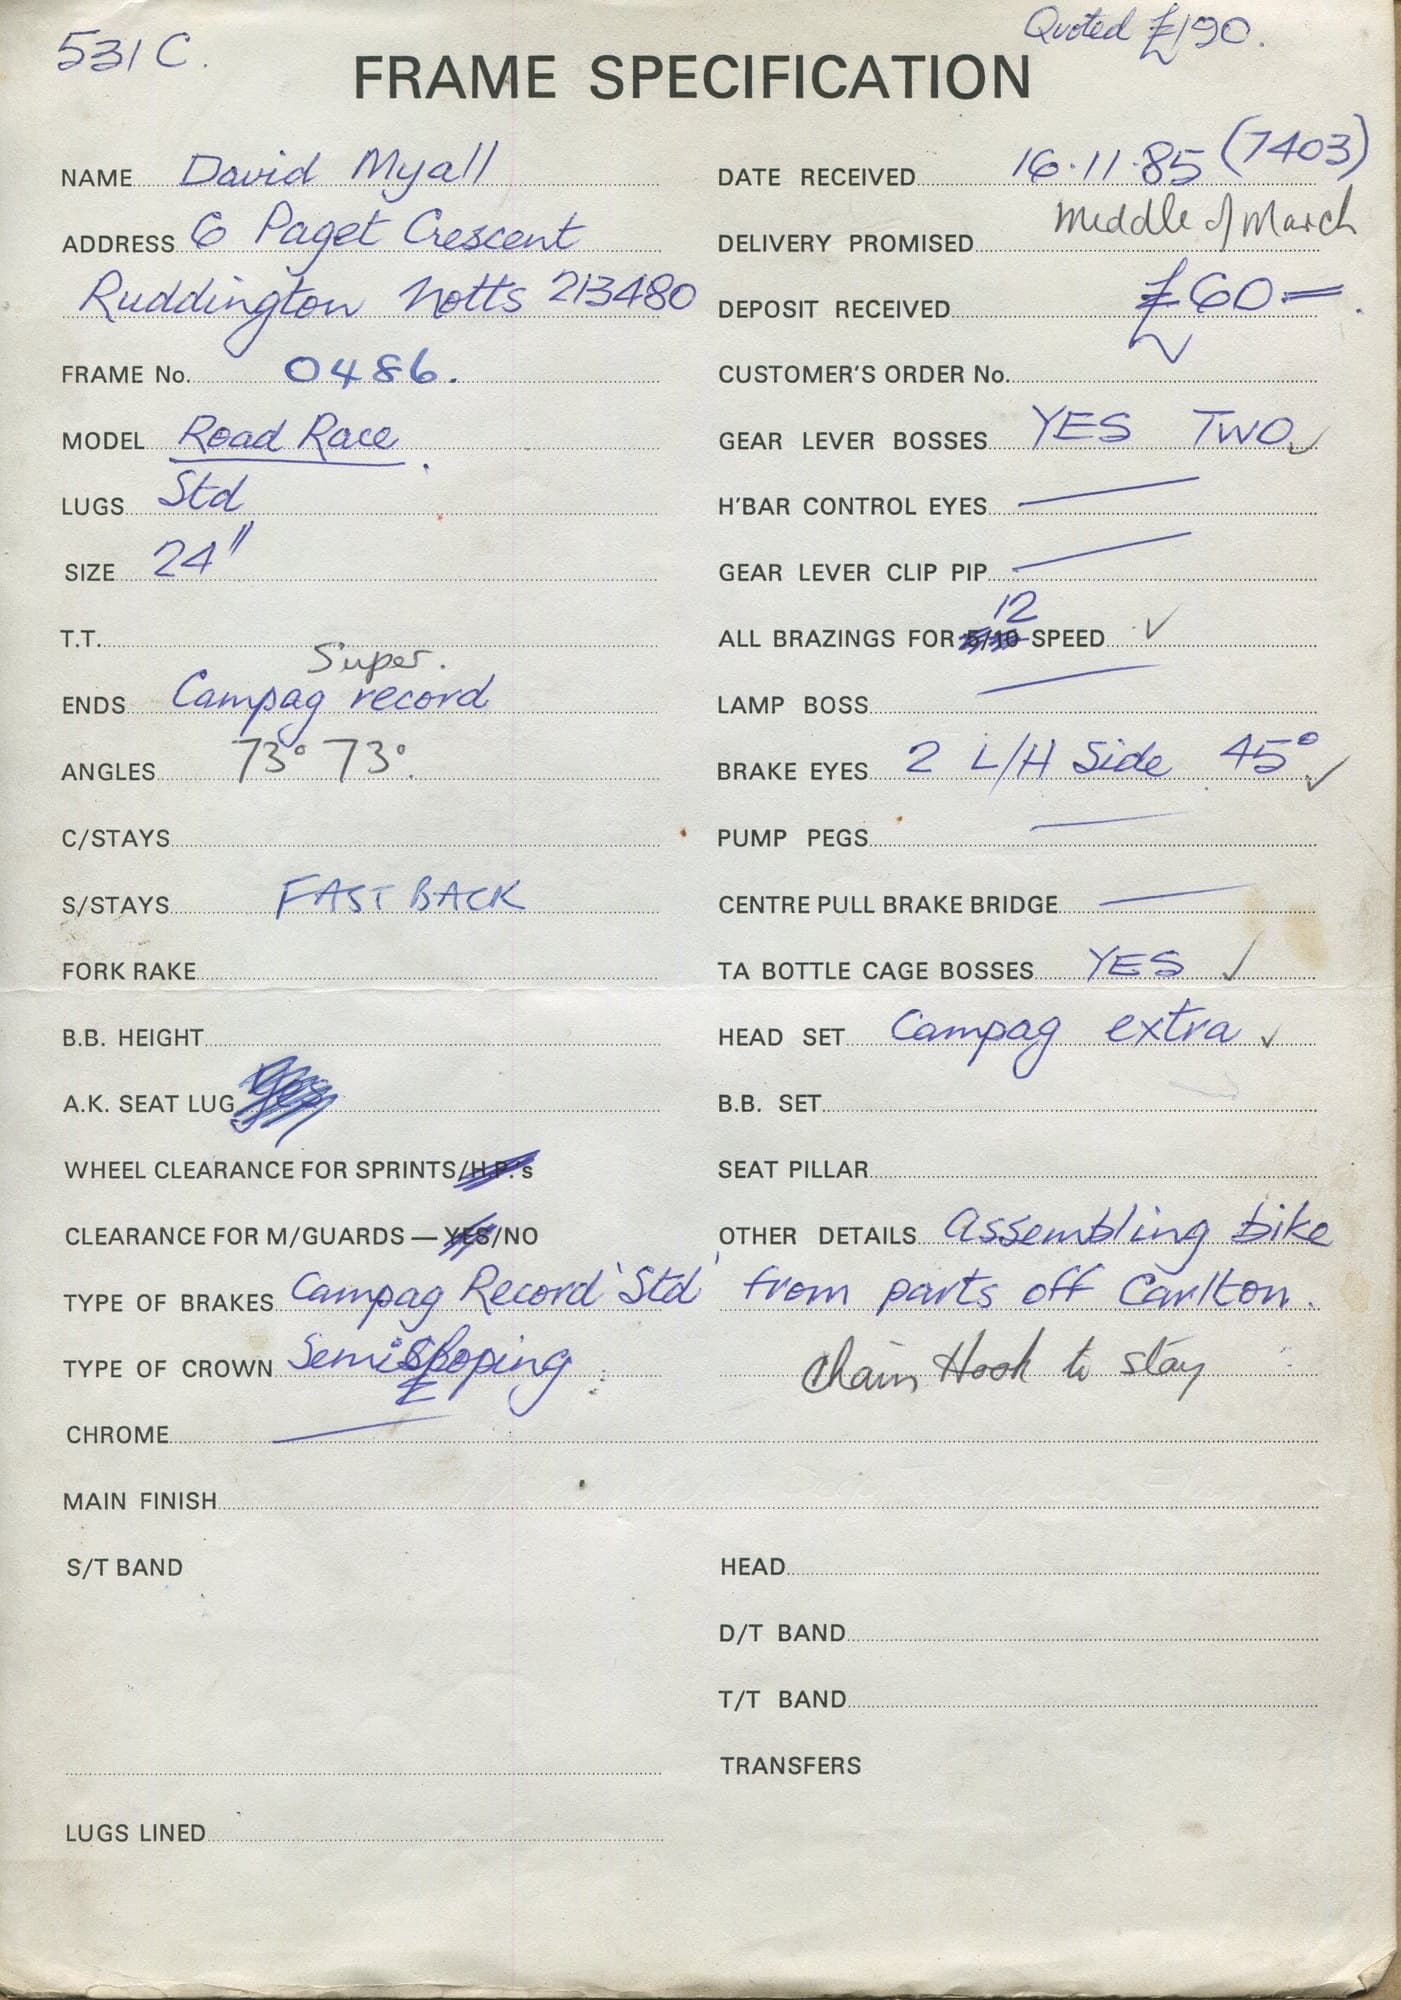 531 C.
Quoted £190.
FRAME SPECIFICATION
NAME David Myall
ADDRESS 6 Paget Crescent
Ruddington Notts 213480
FRAME No. 0486.
MODEL Road Race.
LUGS Std
SIZE 24"
T.T.
Super.
ENDS Campag record
ANGLES 73° 73°.
C/STAYS
S/STAYS FAST BACK
FORK RAKE
B.B. HEIGHT
A.K. SEAT LUG yes
WHEEL CLEARANCE FOR SPRINTS/H.P.'s
CLEARANCE FOR M/GUARDS — YES/NO
TYPE OF BRAKES Campag Record 'Std'
TYPE OF CROWN Semi Sloping
CHROME
MAIN FINISH
S/T BAND
LUGS LINED
DATE RECEIVED 16.11.85 (7403)
DELIVERY PROMISED Middle of March
DEPOSIT RECEIVED £60=.
CUSTOMER'S ORDER No.
GEAR LEVER BOSSES YES TWO ✓
H'BAR CONTROL EYES —
GEAR LEVER CLIP PIP —
12
ALL BRAZINGS FOR 5/10 SPEED ✓
LAMP BOSS —
BRAKE EYES 2 L/H Side 45° ✓
PUMP PEGS —
CENTRE PULL BRAKE BRIDGE —
TA BOTTLE CAGE BOSSES YES ✓
HEAD SET Campag extra ✓
B.B. SET
SEAT PILLAR
OTHER DETAILS Assembling bike
from parts off Carlton.
Chain Hook to stay
HEAD
D/T BAND
T/T BAND
TRANSFERS